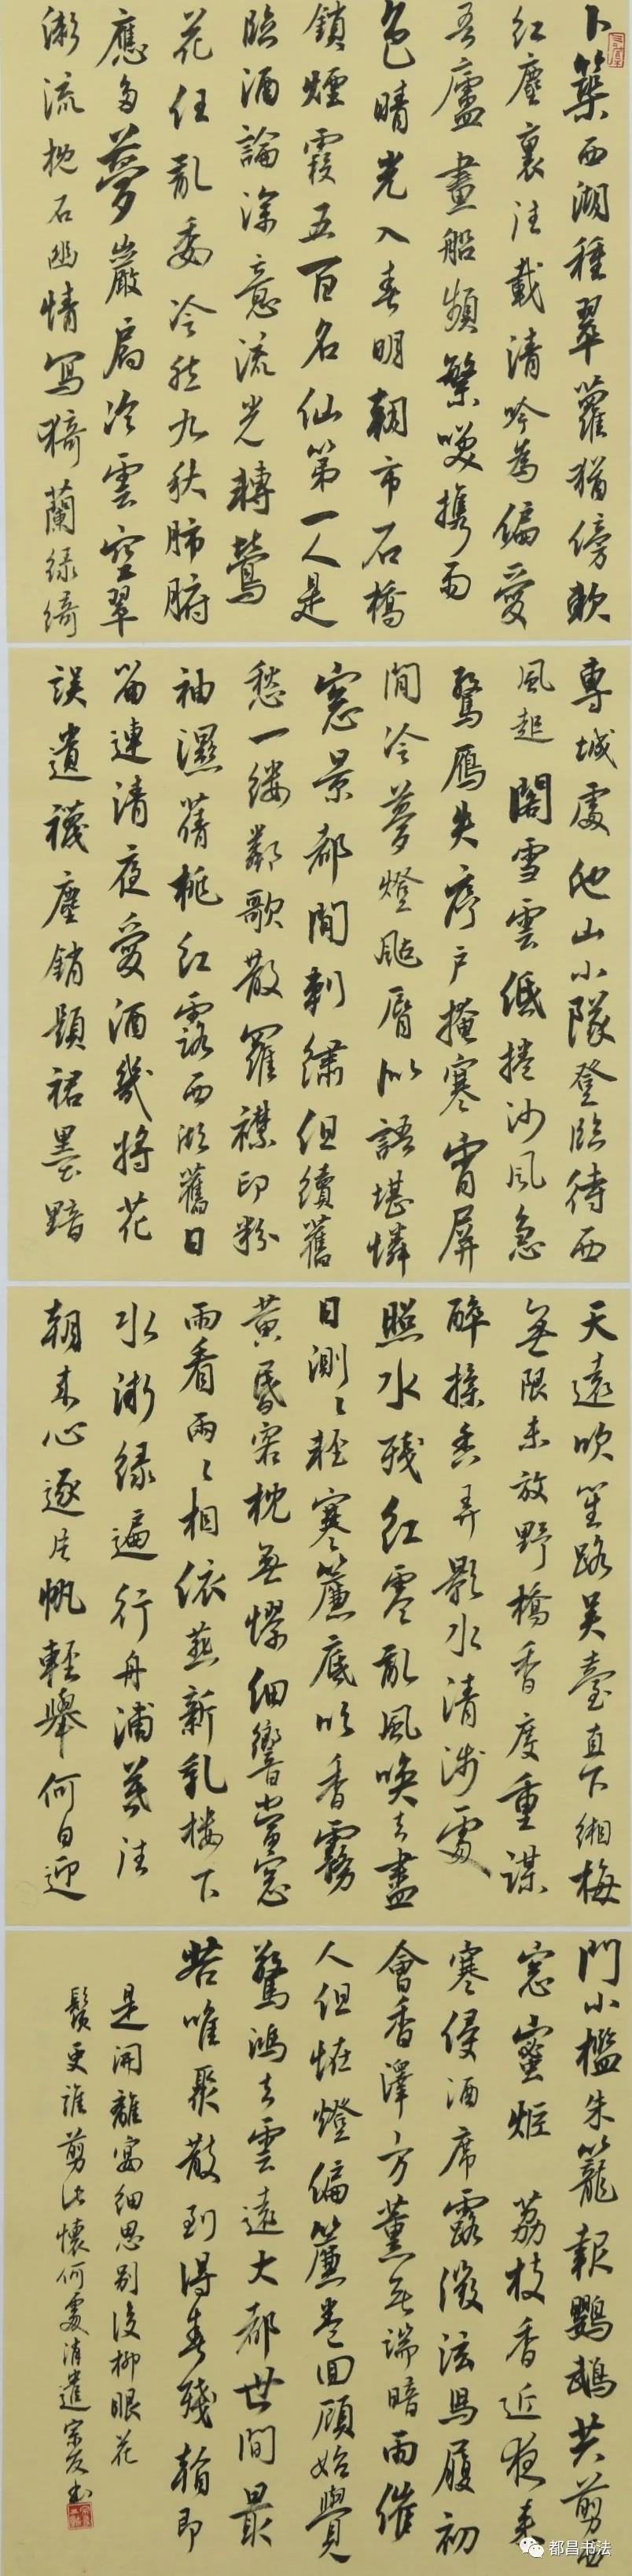 卜築西湖種翠蘿猶傍軟
紅塵裏往載清吟為偏愛
吾廬畫船頻繫笑攜雨
色晴光入春明朝市石橋
鎖煙霞五百名仙第一人是
臨酒論深意流光轉鶯
花任亂委冷然九秋肺腑
應多夢巖扃冷雲空翠
漱流枕石幽情寫猗蘭綠綺
專城處他山小隊登臨待西
風起 閣雪雲低捲沙風急
驚雁失序戶掩寒宵屏
閒冷夢燈颭唇似語堪憐
窗景都閒刺繡但續舊
愁一縷鄰歌散羅襟印粉
袖濕蒨桃紅露西湖舊日
留連清夜愛酒幾將花
誤遺襪塵銷題裙墨黯
天遠吹笙路吳臺直下緗梅
無限未放野橋香度重謀
醉揉香弄影水清淺處
照水殘紅零亂風喚去盡
日測測輕寒簾底吹香霧
黃昏客枕無憀細響當窗
雨看兩兩相依燕新乳樓下
水漸綠遍行舟浦暮往
朝來心逐片帆輕舉何日迎
門小檻朱籠報鸚鵡共剪西
窗蜜炬 荔枝香近夜來
寒侵酒席露微泫舄履初
會香澤方薰無端暗雨催
人但怪燈偏簾卷回顧始覺
驚鴻去雲遠大都世間最
苦唯聚散到得春殘看即
是開離宴細思別後柳眼花
鬚更誰剪此懷何處消遣 宗友書
都昌书法